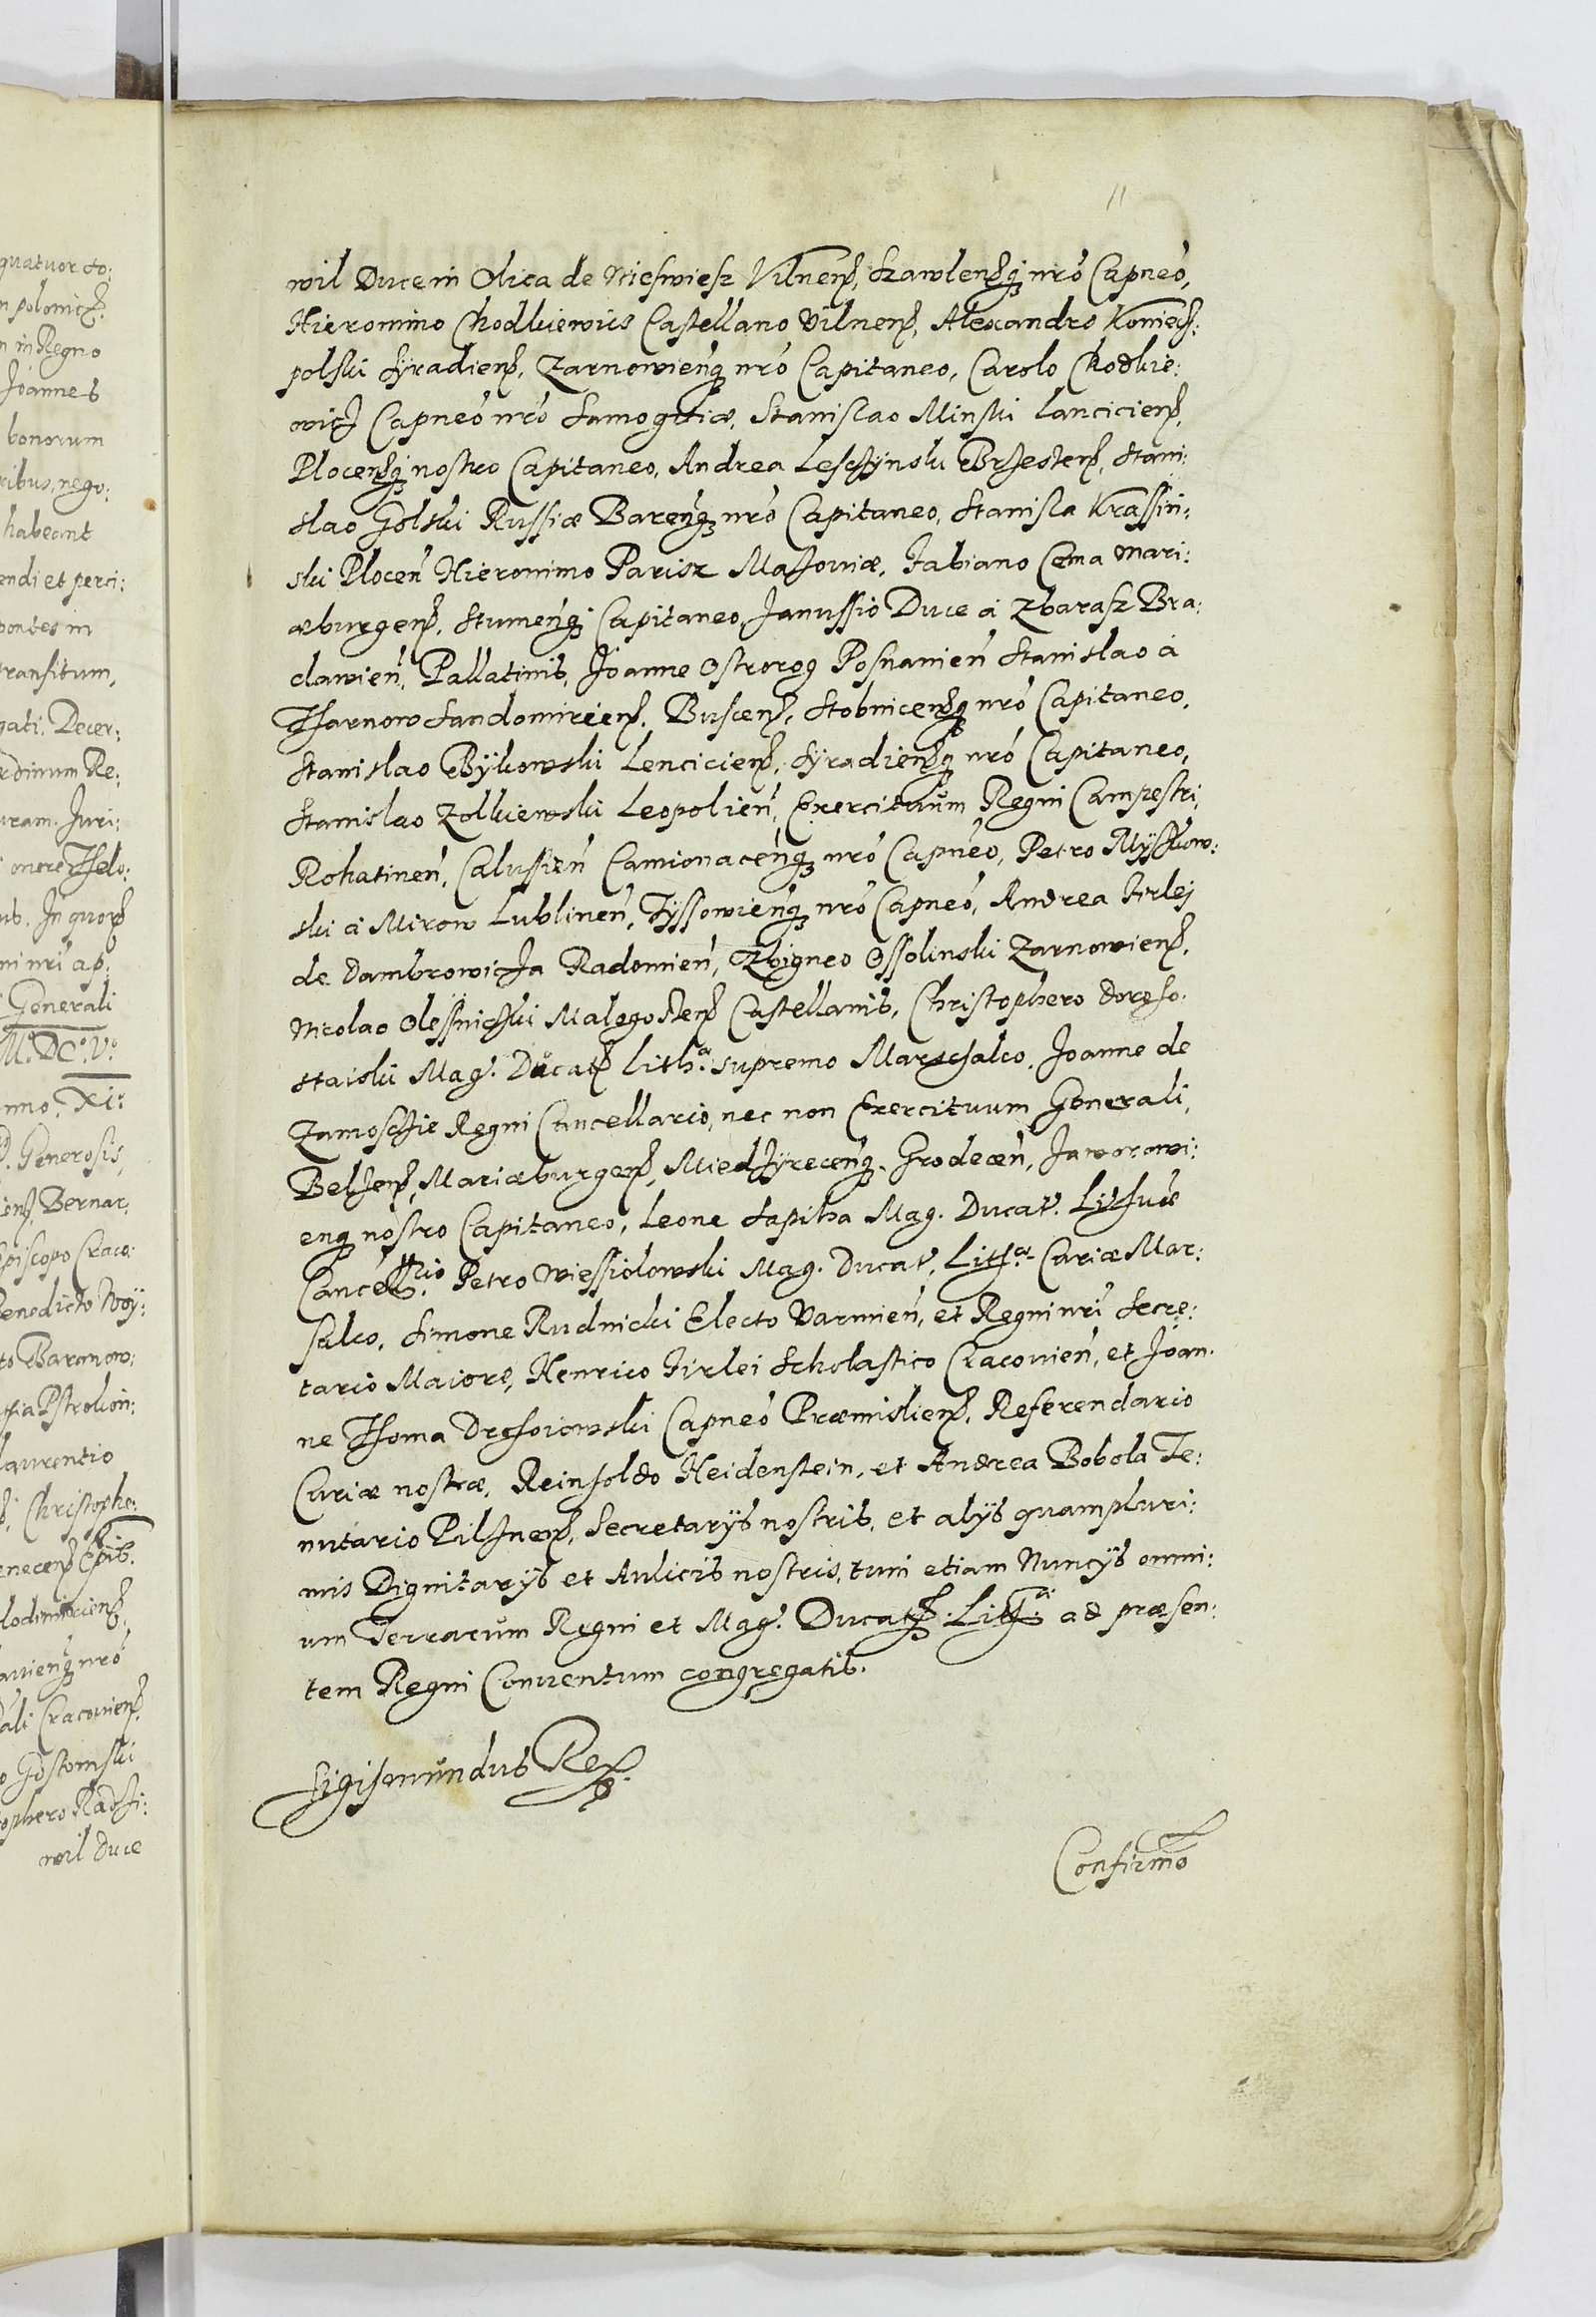 quatuor to:
n polonic.
n in Regno
Joannes
bonorum
ribus, nego:
habeant
endi et perci:
pontes in
transitum,
gati. Decer:
rdinum Re:
uram. Juri:
onere Thelo:
ub. In quor
ni nrī ap:
Generali
M.DC.V.
nno. XI.
Generosis,
Bernar,
Episcopo Craco:
Benedicto Woÿ:
to Baranow:
Pstrokon:
laurentio
Christophe:
enecens Epīb.
lodomiriens
nrō
ali Cracouiens.
o Gostomski
tophero Radzi:
wil Duce
11
wil Duce in Olica de Nieswiesz Vilnens, Szawlensq nrō Capneō,
Hieronimo Chodkiewics Castellano Vilnens, Alexandro Koniecz:
polski Syradiens, Zarnowienq nrō Capitaneo, Carolo Chodkie:
wicz Capneō nrō Samogitiæ, Stanislao Minski Lanciciens,
Plocensq nostro Capitaneo, Andrea Lesczÿnski Brzestens, Stani:
slao Golski Russiæ Barenq nrō Capitaneo, Stanisla Krassin:
ski Plocen Hieronimo Parisz Mazouiæ, Fabiano Cema Mari:
æburgens, Stumenq Capitaneo, Janussio Duce à Zbarasz Bra:
clawien, Pallatinis, Joanne Ostrorog Posnanien Stanislao à
Tharnow Sandomiriens, Buscens, Stobnicensq nrō Capitaneo,
Stanislao Bÿkowski Lenciciens, Sÿradiensq nrō Capitaneo,
Stanislao Zolkiewski Leopolien, Exercituum Regni Campestri,
Rohatinen, Calussien Camionacenq nrō Capneō, Petro Mÿszkow:
ski à Mirow Lublinen, Tÿssowienq nrō Capneō, Andrea Firlej
de Dambrowicza Radomien, Zbigneo Ossolinski Zarnowiens,
Nicolao Olessniczki Malogostens Castellanis, Christophero Doroho:
staiski Mag. Ducats Lith.æ supremo Marschalco, Joanne de
Zamosczie Regni Cancellario, nec non Exercituum Generali,
Belzens, Mariæburgens, Miedzÿrecenq, Grodecen, Jaworowi:
enq nostro Capitaneo, Leone Sapiha Mag. Ducat. Lithuæ
Cancellrio. Petro Wiessiolowski Mag. Ducat. Lith.æ Curiæ Mar:
salco, Simone Rudnicki Electo Varmien, et Regni nrī Secre:
tario Maiore, Henrico Firlei Scholastico Cracouien, et Joan:
ne Thoma Drohoiowski Capneō Præmisliens, Referendario
Curiæ nostræ, Reinholdo Heidenstein, et Andrea Bobola Te:
nutario Pilznens, Secretarÿs nostris, et alÿs quampluri:
mis Dignitarÿs et Aulicis nostris, tum etiam Nuncÿs omni:
um Terrarum Regni et Mag. Ducats. Lith.æ ad præsen:
tem Regni Conuentum congregatis.
Sigismundus Rex
Confirmō